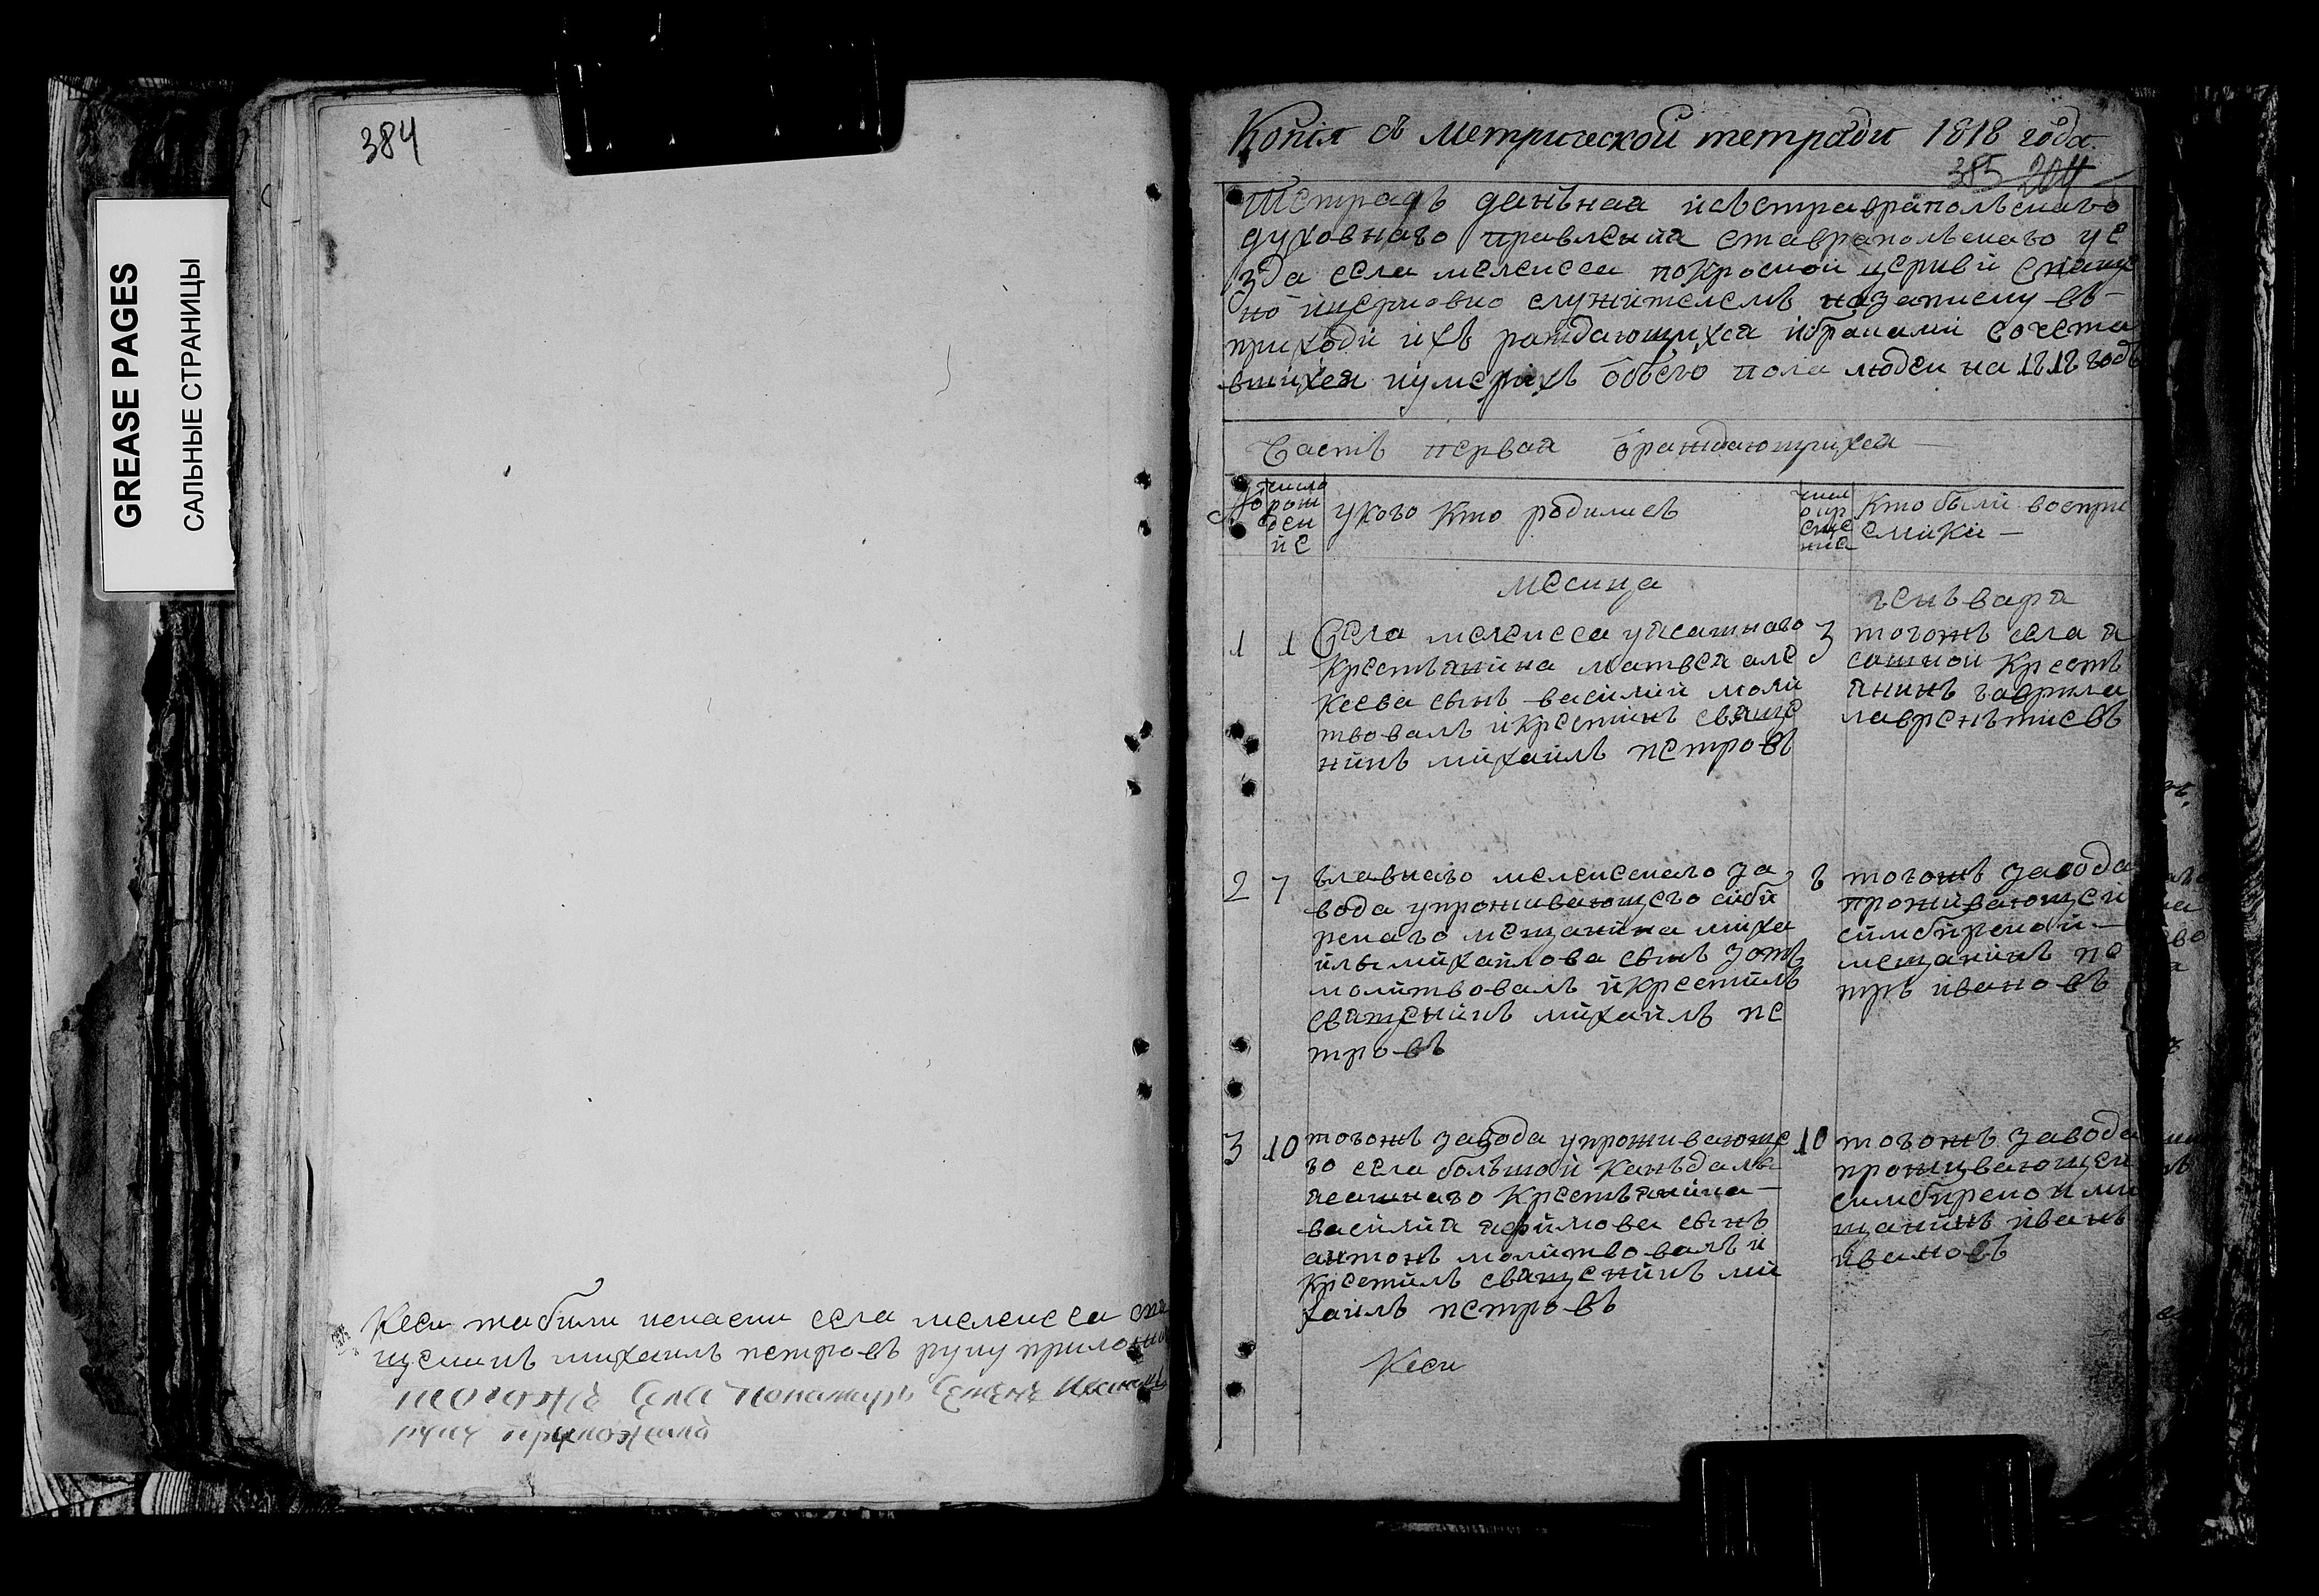 GREASE PAGES
САЛЬНЫЕ СТРАНИЦЫ
384
Ксеи табили села мелекеса
щенникъ михаилъ петровъ руку приложи
тогожъ села понамарь Семенъ
руку приложилъ
Копія съ метрической тетради 1818 года.
385 204
Тетрадь данъная исъставрапольскаго
духовнаго правления ставрапольскаго уе
зда села мелекеса покроской церкви свяще
но ицерковно служителемъ назаписку въ-
приходи ихъ раждающихся ибраками сочета
вшихся иумерихъ обоего пола людеи на 1818 годъ
Часть первая ораждающихся —
№
число рождение
укого кто родилисъ
число крещения
Кто были воспри
емики —
месица
генъваря
1
1
Села мелекеса уясашнаго
крестьянина матвея але
ксева сынъ василий моли
твовалъ икрестилъ свяще
никъ михаилъ петровъ
3
тогожъ села я
сашной кресть
янинъ гаврила
лавренътиевъ
2
7
главнаго мелекескаго за
вода упроживающего симби
рскаго мещанина миха
илы михаилова сынъ зотъ
молитвовалъ икрестилъ
священиикъ михаилъ пе
тровъ
8
тогожъ завода
проживающеи
симбирской —
мещанинъ пе
тръ ивановъ
3
10
тогожъ завода упроживающе
го села большой канъдалы
ясашнаго крестьянина —
василия яфимова сынъ
антонъ молитвовалъ и
крестилъ священикъ ми
хаилъ петровъ
10
тогожъ завода
проживающеи
симбирской ми
щанинъ иванъ
ивановъ
Ксеи